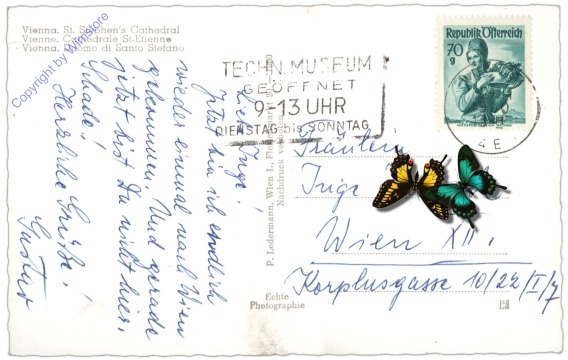 Vienna. St. Stephen's Cathedral
Vienne. Cathédrale St-Etienne
Vienna. Duomo di Santo Stefano
Copyright by Winstore
TECHN. MUSEUM
GEÖFFNET
9-13 UHR
DIENSTAG bis SONNTAG
Republik Österreich
70
g
4 E
Liebe Inge!
Jetzt bin ich endlich
wieder einmal nach Wien
gekommen. Und gerade
jetzt bist Du nicht hier.
Schade!
Herzliche Grüße!
Gustav
P. Ledermann, Wien I.,
Nachdruck verboten
Echte
Photographie
Fräulein
Inge
Wien XII.
Korplusgasse 10/22/I/7